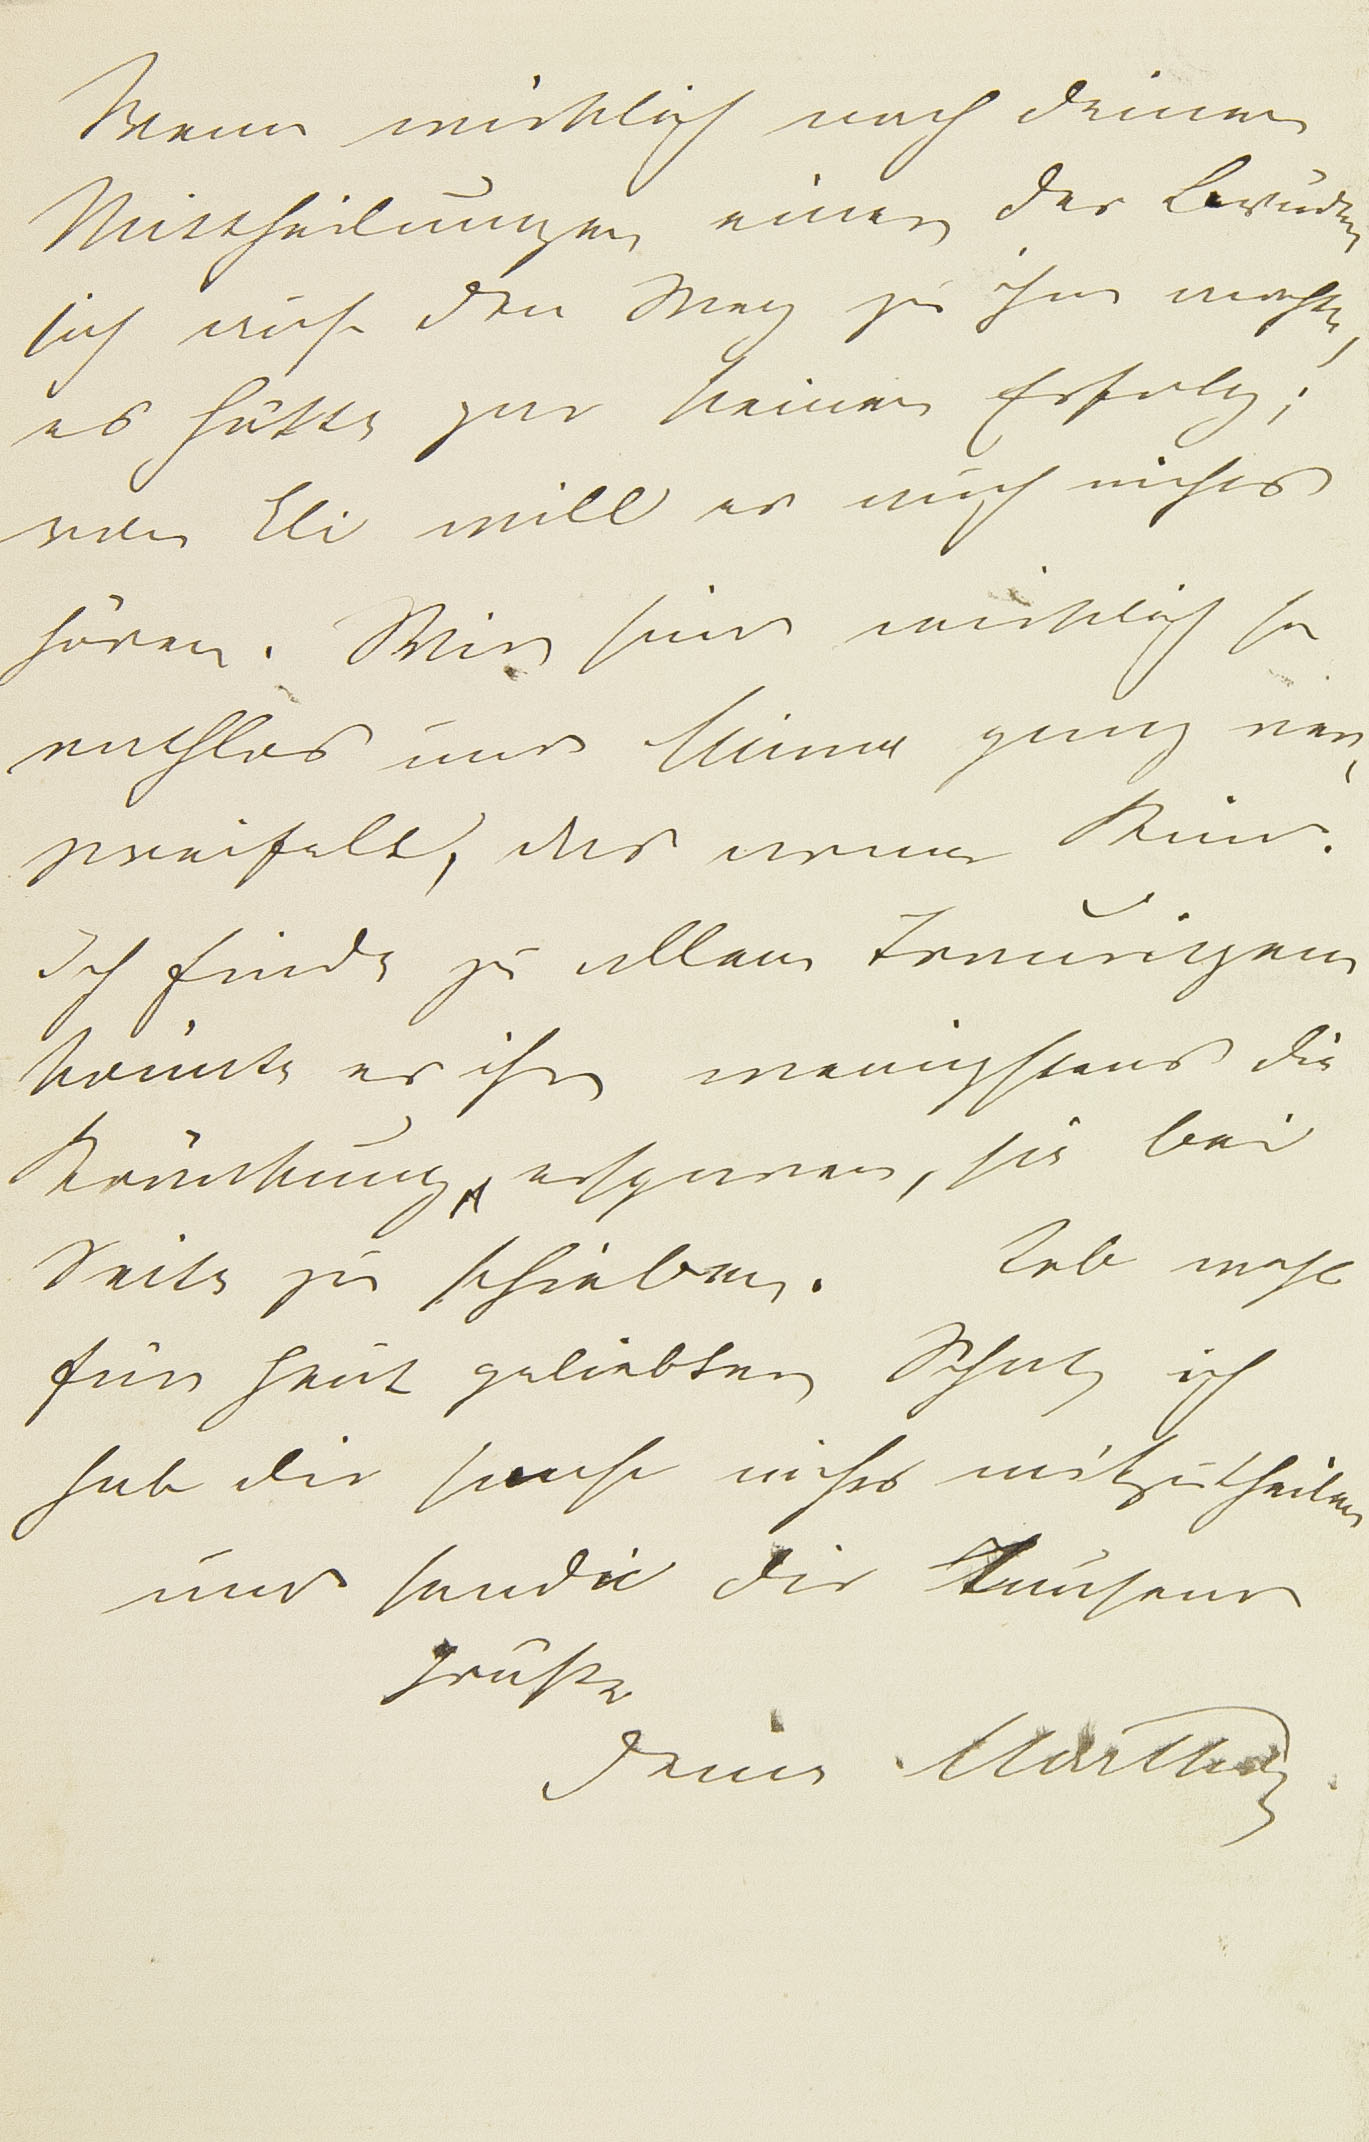 Wenn wirklich nach deinen
Mittheilungen einer der Brüder
sich auch den Weg zu ihm machte,
es hätte gar keinen Erfolg;
von Eli will er auch nichts
hören. Wir sind wirklich so
rathlos und Minna ganz ver¬
zweifelt, das arme Kind.
Ich finde zu allem Traurigen
könnte er ihr wenigstens die
Kränkung ersparen, sie bei
Seite zu schieben. Leb wohl
für heut geliebter Schatz ich
hab dir sonst nichts mitzutheilen
und sende dir Tausend
Grüße
deine Martha